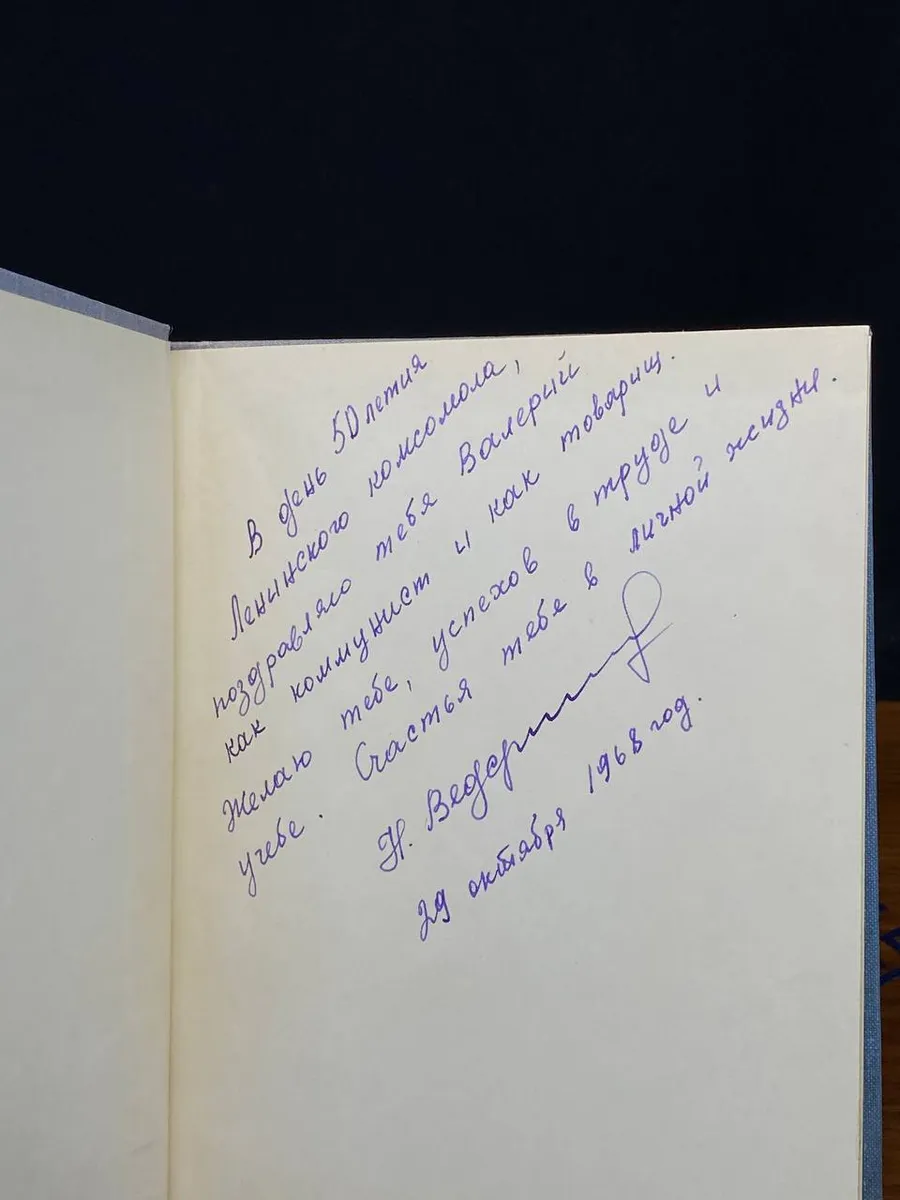 В день 50 летия
Ленинского комсомола,
поздравляю тебя Валерий
как коммунист и как товарищ.
Желаю тебе, успехов в труде и
учебе. Счастья тебе в личной жизни.
Н.
29 октября 1968 год.